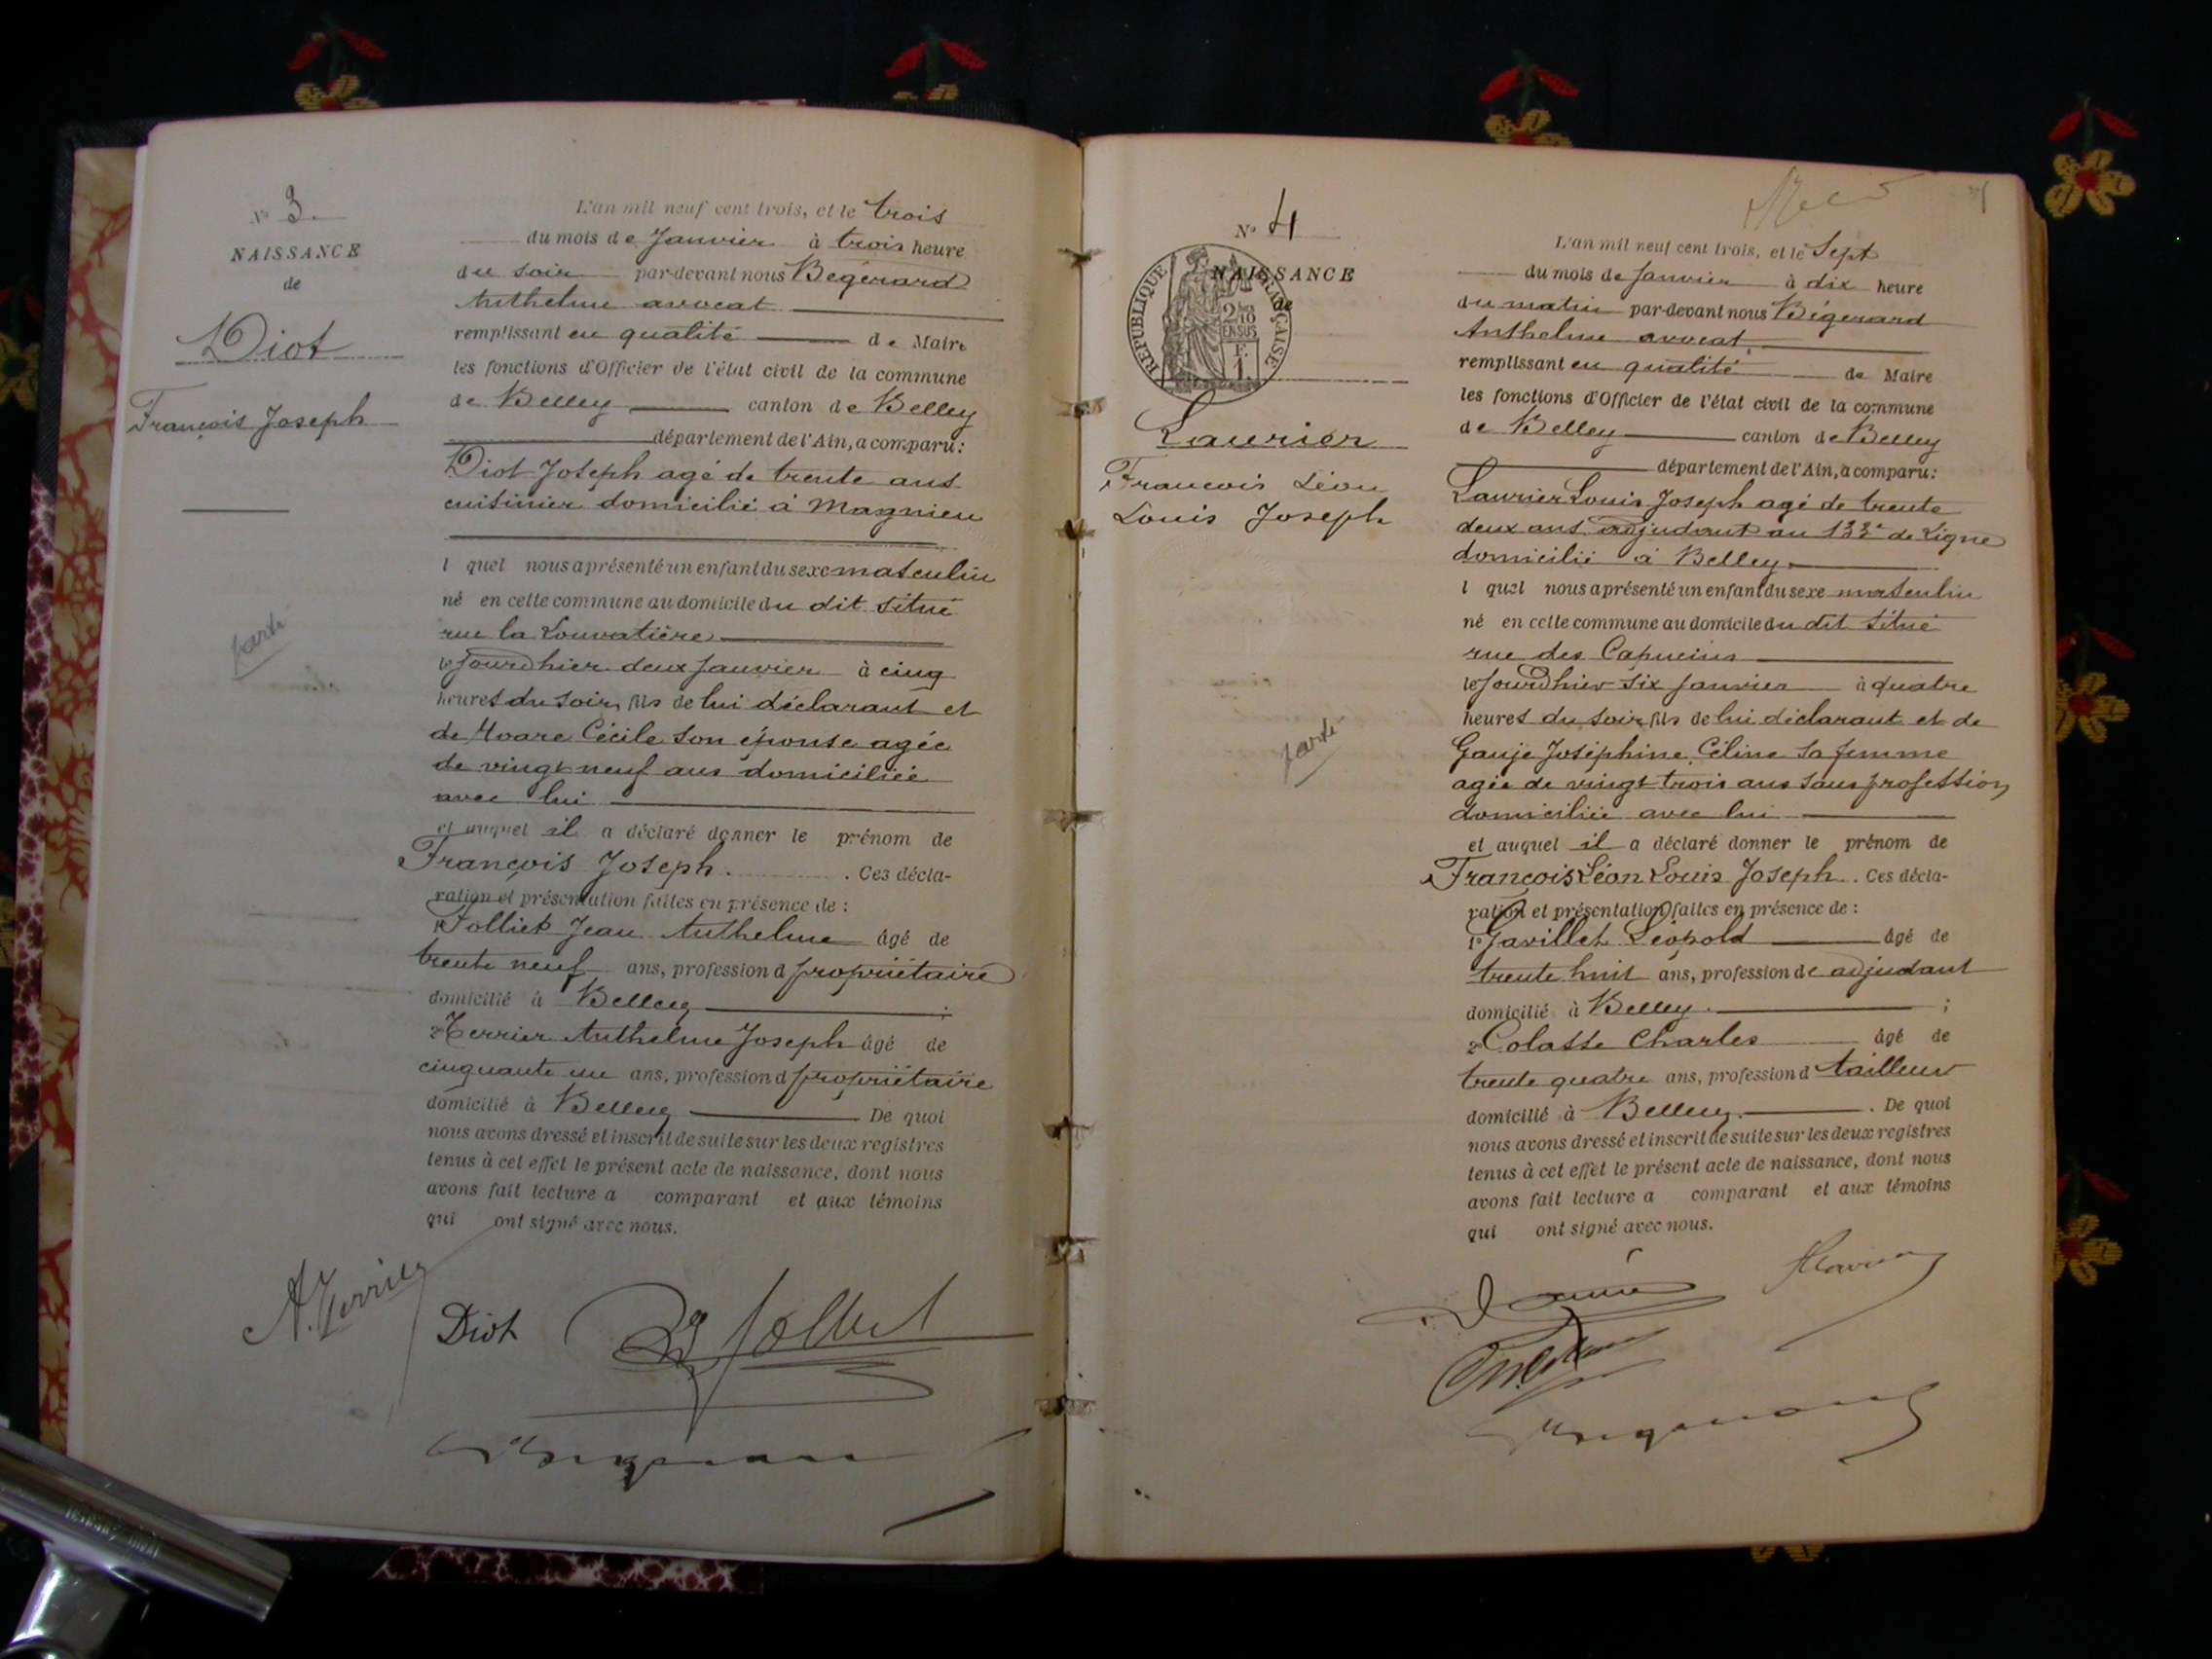 N° 3.
NAISSANCE
de
Diot
François Joseph
porté
L'an mil neuf cent trois, et le trois
du mois de Janvier à trois heure
du soir par-devant nous Bégérard
Anthelme avocat
remplissant en qualité de Maire
les fonctions d'Officier de l'état civil de la commune
de Belley canton de Belley
département de l'Ain, a comparu:
Diot Joseph agé de trente ans
cuisinier domicilié à Magnieu
l quel nous a présenté un enfant du sexe masculin
né en cette commune au domicile du dit situé
rue la Louvatière
le jourd'hier deux Janvier à cinq
heures du soir, fils de lui déclarant et
de Cécile son épouse agée
de vingt neuf ans domiciliée
avec lui
et auquel il a déclaré donner le prénom de
François Joseph. . Ces décla-
ration et présentation faites en présence de :
1° Folliet Jean Anthelme âgé de
trente neuf ans, profession d propriétaire
domicilié à Belley ;
2° Terrier Anthelme Joseph âgé de
cinquante un ans, profession d propriétaire
domicilié à Belley De quoi
nous avons dressé et inscrit de suite sur les deux registres
tenus à cet effet le présent acte de naissance, dont nous
avons fait lecture a comparant et aux témoins
qui ont signé avec nous.
A. Terrier
Diot
Folliet
N° 4
NAISSANCE
de
REPUBLIQUE FRANÇAISE
2/10
EN SUS
Laurier
Francois Léon
Louis Joseph
porté
L'an mil neuf cent trois, et le Sept
du mois de Janvier à dix heure
du matin par-devant nous Bégérard
Anthelme avocat
remplissant en qualité de Maire
les fonctions d'Officier de l'état civil de la commune
de Belley canton de Belley
département de l'Ain, a comparu:
Laurier Louis Joseph agé de trente
deux ans adjudant au 133e de Ligne
domicilié à Belley
l quel nous a présenté un enfant du sexe masculin
né en cette commune au domicile du dit situé
rue des Capucins
le jourd'hier six Janvier à quatre
heures du soir, fils de lui déclarant et de
Gauje Joséphine Céline sa femme
agée de vingt trois ans sans profession
domiciliée avec lui
et auquel il a déclaré donner le prénom de
François Léon Louis Joseph. Ces décla-
ration et présentation faites en présence de :
1° Javillet Léopold âgé de
trente huit ans, profession de adjudant
domicilié à Belley. ;
2° Colasse Charles âgé de
trente quatre ans, profession d tailleur
domicilié à Belley. . De quoi
nous avons dressé et inscrit de suite sur les deux registres
tenus à cet effet le présent acte de naissance, dont nous
avons fait lecture a comparant et aux témoins
qui ont signé avec nous.